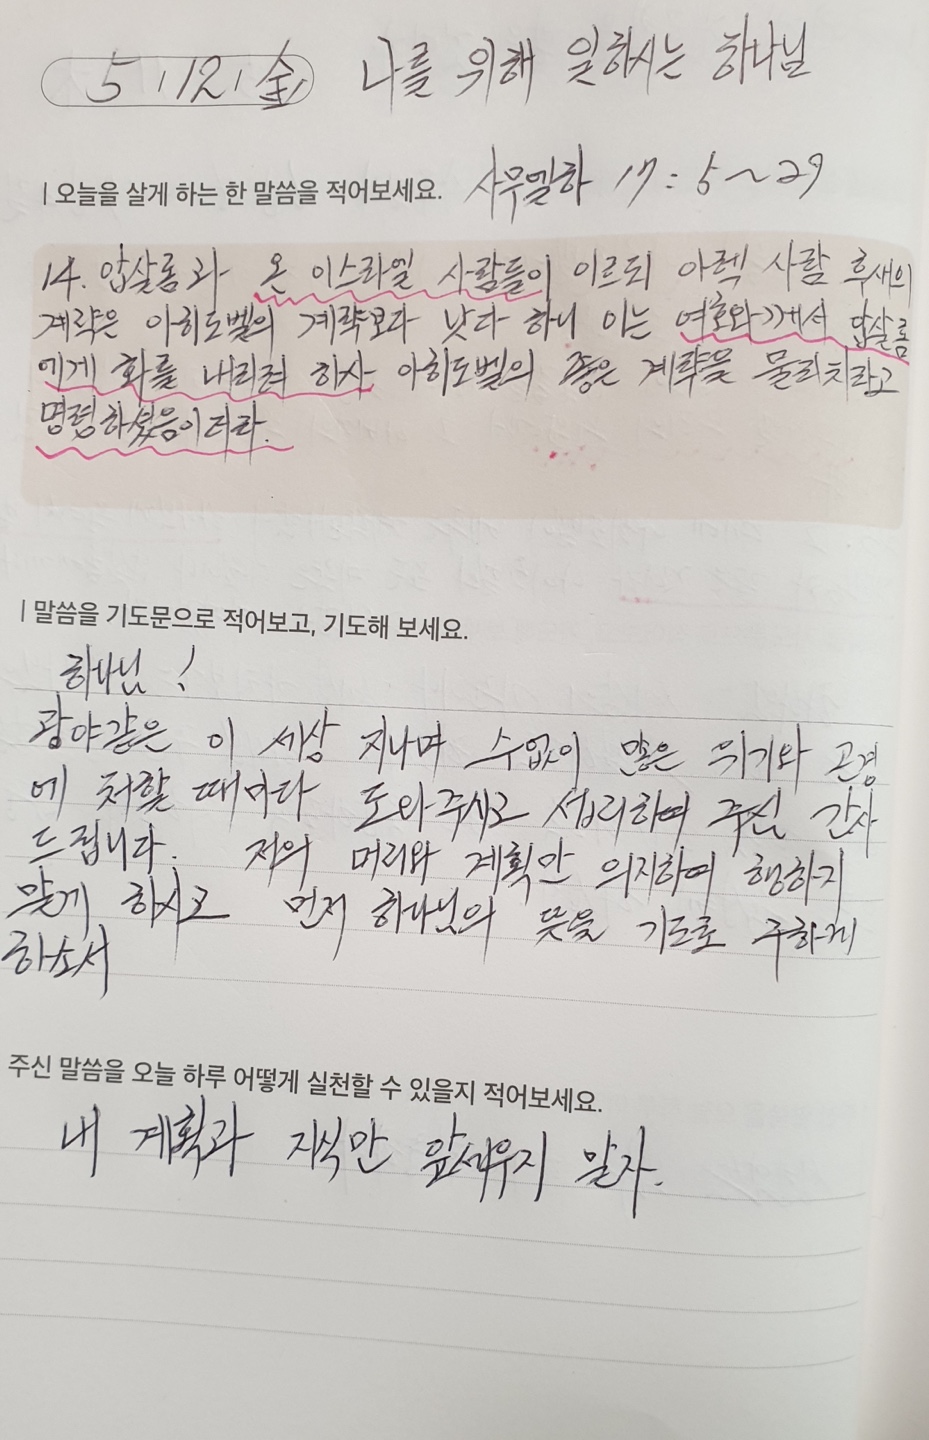 5.12.金 나를 위해 일하시는 하나님
| 오늘을 살게 하는 한 말씀을 적어보세요. 사무엘하 17:5~29
14. 압살롬과 온 이스라엘 사람들이 이르되 아렉 사람 후새의
계략은 아히도벨의 계략보다 낫다 하니 이는 여호와께서 압살롬
에게 화를 내리려 하사 아히도벨의 좋은 계략을 물리치라고
명령하셨음이더라.
| 말씀을 기도문으로 적어보고, 기도해 보세요.
하나님!
광야같은 이 세상 지나며 수없이 많은 위기와 곤경
에 처할 때마다 도와주시고 섭리하여 주신 감사
드립니다. 저의 머리와 계획만 의지하여 행하지
맞게 하시고 먼저 하나님의 뜻을 기도로 구하게
하소서
주신 말씀을 오늘 하루 어떻게 실천할 수 있을지 적어보세요.
내 계획과 지식만 앞세우지 말자.